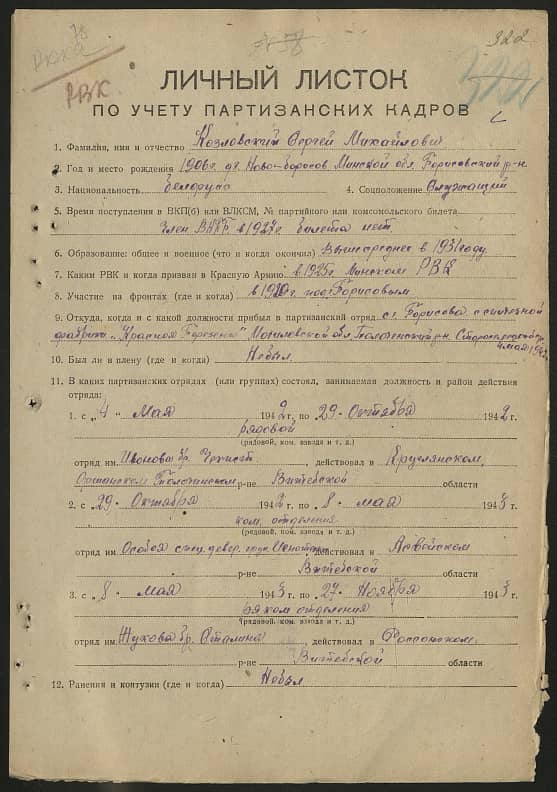 78
РККА
РВК
322
ЛИЧНЫЙ ЛИСТОК
ПО УЧЕТУ ПАРТИЗАНСКИХ КАДРОВ
1. Фамилия, имя и отчество Козловский Сергей Михайлович
2. Год и место рождения 1906г. д. Ново-борисов Минской обл. Борисовский р-н
3. Национальность белорус 4. Соцположение Служащий
5. Время поступления в ВКП(б) или ВЛКСМ, № партийного или комсомольского билета
Член в 1927г. билета нет.
6. Образование: общее и военное (что и когда окончил) в 1931 году.
7. Каким РВК и когда призван в Красную Армию в 1925г. Минским РВК
8. Участие на фронтах (где и когда) в 1920г. под Борисовым
9. Откуда, когда и с какой должности прибыл в партизанский отряд с г. Борисова с спичечной
фабрики "Красная Березина" обл. Толочинский р-н.
10. Был ли в плену (где и когда) Не был
11. В каких партизанских отрядах (или группах) состоял, занимаемая должность и район действия
отряда:
1. с „4 " Мая 1942 г. по 29 Октября 1942 г.
рядовой
(рядовой, ком. взвода и т. д.)
отряд им. Иванова бр. Чекист, действовал в Круглянском,
Оршанском Толочинском р-не Витебской области
2. с „29 Октября 1942 г. по „8 - мая 1943 г.
ком. отделения
(рядовой, ком. взвода и т. д.)
отряд им. Особая спец. действовал в Освейском
р-не Витебской области
3. с „8 Мая 1943 г. по „27 Ноября 1943 г.
ком отделения
(рядовой, ком. взвода и т. д.)
отряд им. Жукова бр. Сталина, действовал в Россонском
р-не Витебской области
12. Ранения и контузии (где и когда) Не был